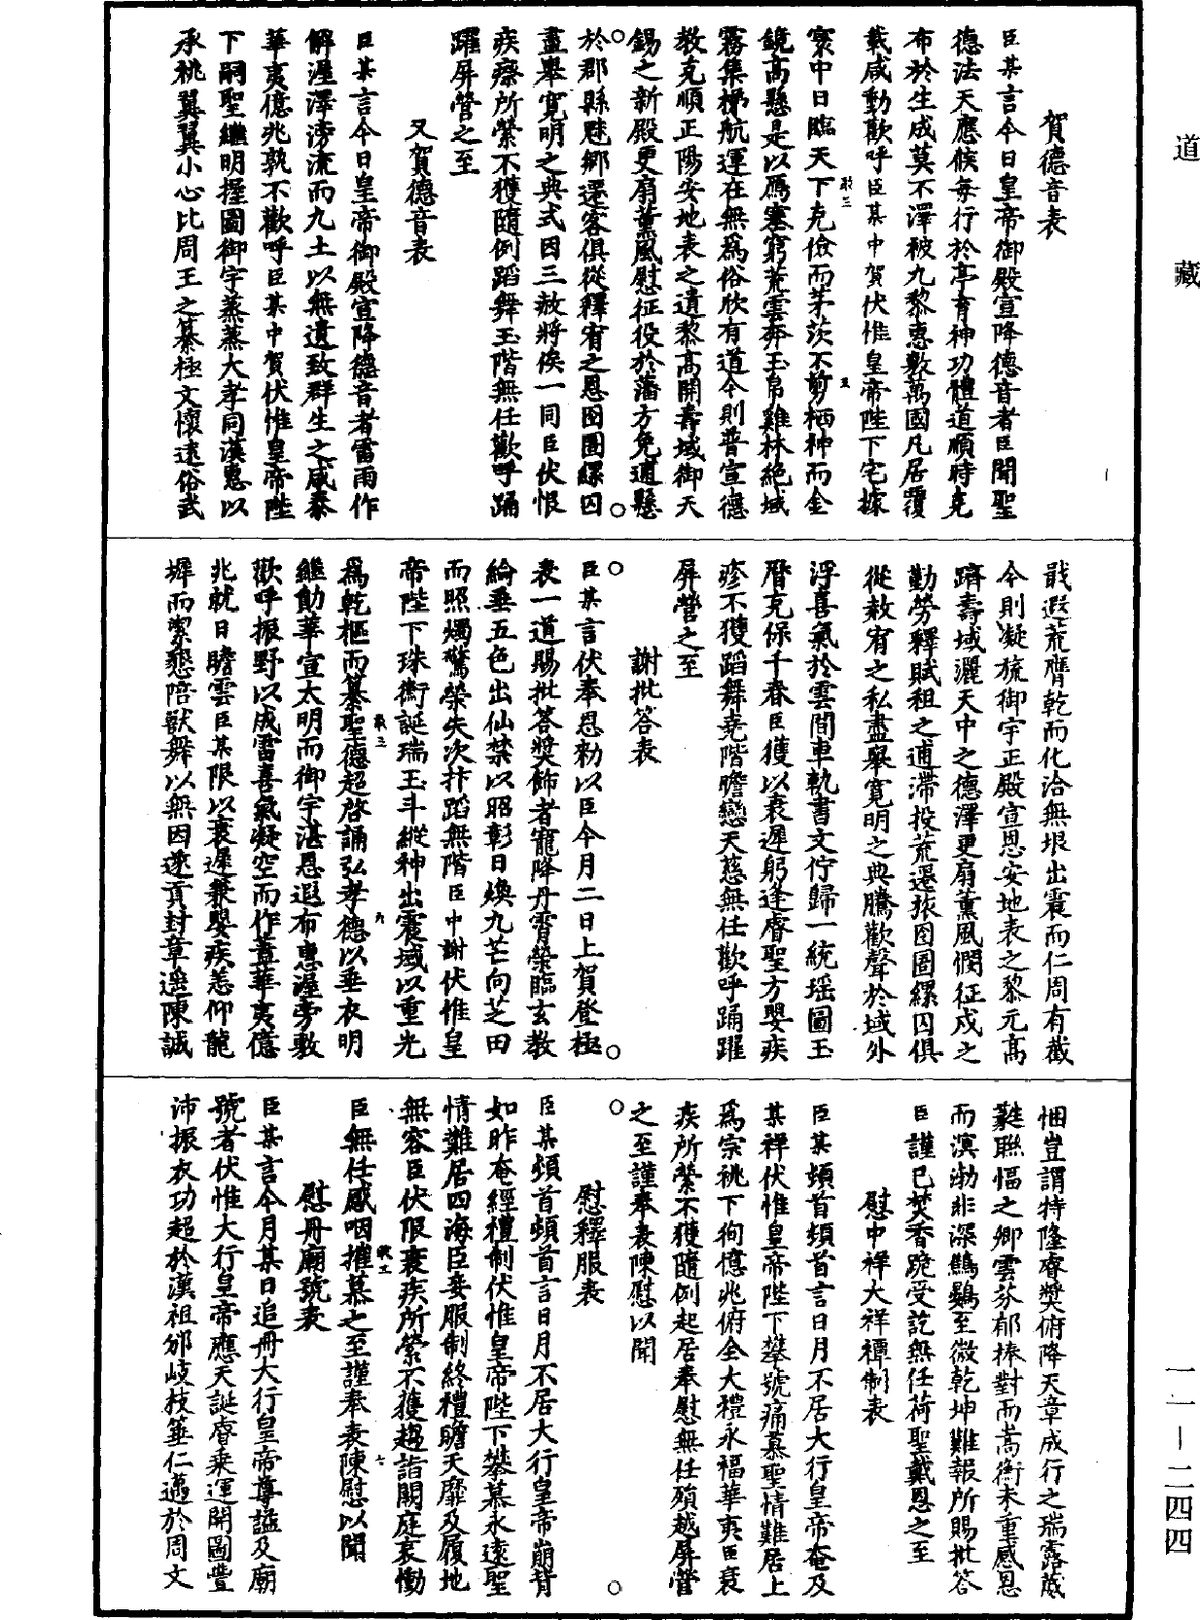 道藏
賀德音表
臣某言今日皇帝御殿宣降德音者臣聞聖
德法天應候每行於亭育神功體道順時克
布於生成莫不澤被九黎惠敷萬國凡居覆
載咸動歡呼臣某中賀伏惟皇帝陛下宅據
寰中日臨天下克儉而茅茨不剪栖神而金
鏡高懸是以鴈塞窮荒雲奔玉帛雞林絕域
霧集梯航運在無爲俗欣有道今則普宣德
教克順正陽安地表之遺黎高開壽域御天
錫之新殿更扇薰風慰征役於藩方免逋懸
於郡縣魅鄉遷客俱從釋宥之恩囹圄縲囚
盡舉寬明之典式因三赦將俟一同臣伏恨
疾瘵所縈不獲隨例蹈舞玉階無任歡呼踊
躍屏營之至
又賀德音表
臣某言今日皇帝御殿宣降德音者雷雨作
解渥澤滂流而九土以無遺致群生之咸泰
華夷億兆孰不歡呼臣某中賀伏惟皇帝陛
下嗣聖繼明握圖御宇蒸蒸大孝同漢惠以
承祧翼翼小心比周王之纂極文懷遠俗武
戢遐荒膺乾而化洽無垠出震而仁周有截
今則凝旒御宇正殿宣恩安地表之黎元高
躋壽域灑天中之德澤更扇薰風憫征戍之
勤勞釋賦租之逋滯投荒遷旅囹圄縲囚俱
從赦宥之私盡舉寬明之典騰歡聲於域外
浮喜氣於雲間車軌書文佇歸一統瑶圖玉
曆克保千春臣獲以衰遲躬逢睿聖方嬰疾
疹不獲蹈舞堯階瞻戀天慈無任歡呼踊躍
屏營之至
謝批荅表
臣某言伏奉恩勑以臣今月二日上賀登極
表一道賜批荅獎飾者寵降丹霄榮臨玄教
綸垂五色出仙禁以昭彰日煥九芒向芝田
而照燭驚榮失次抃蹈無階臣中謝伏惟皇
帝陛下珠衡誕瑞玉斗縱神出震域以重光
爲乾樞而纂聖德超啓誦弘孝德以垂衣明
繼勛華宣太明而御宇湛恩遐布惠渥旁敷
歡呼振野以成雷喜氣凝空而作蓋華夷億
兆就日瞻雲臣某限以衰遲兼嬰疾恙仰龍
墀而絜懇陪獸舞以無因遂貢封章遥陳誠
悃豈謂特隆睿獎俯降天章成行之瑞露葳
蕤聯幅之卿雲芬郁捧對而嵩衡未重感恩
而溟渤非深鷦鷃至微乾坤難報所賜批荅
臣謹已焚香跪受訖無任荷聖戴恩之至
慰中祥大祥禫制表
臣某頓首頓首言日月不居大行皇帝奄及
某祥伏惟皇帝陛下攀號痛慕聖情難居上
爲宗祧下徇億兆俯全大禮永福華夷臣衰
疾所縈不獲隨例起居奉慰無任殞越屏營
之至謹奉表陳慰以聞
慰釋服表
臣某頓首頓首言日月不居大行皇帝崩背
如昨奄經禮制伏惟皇帝陛下攀慕永遠聖
情難居四海臣妾服制終禮瞻天靡及履地
無容臣伏限衰疾所縈不獲趨詣闕庭哀慟
臣無任感咽摧慕之至謹奉表陳慰以聞
慰冊廟號表
臣某言今月某日追冊大行皇帝尊謚及廟
號者伏惟大行皇帝應天誕睿乘運開圖豐
沛振衣功超於漢祖邠岐枝𦯬仁邁於周文
一一－二四四